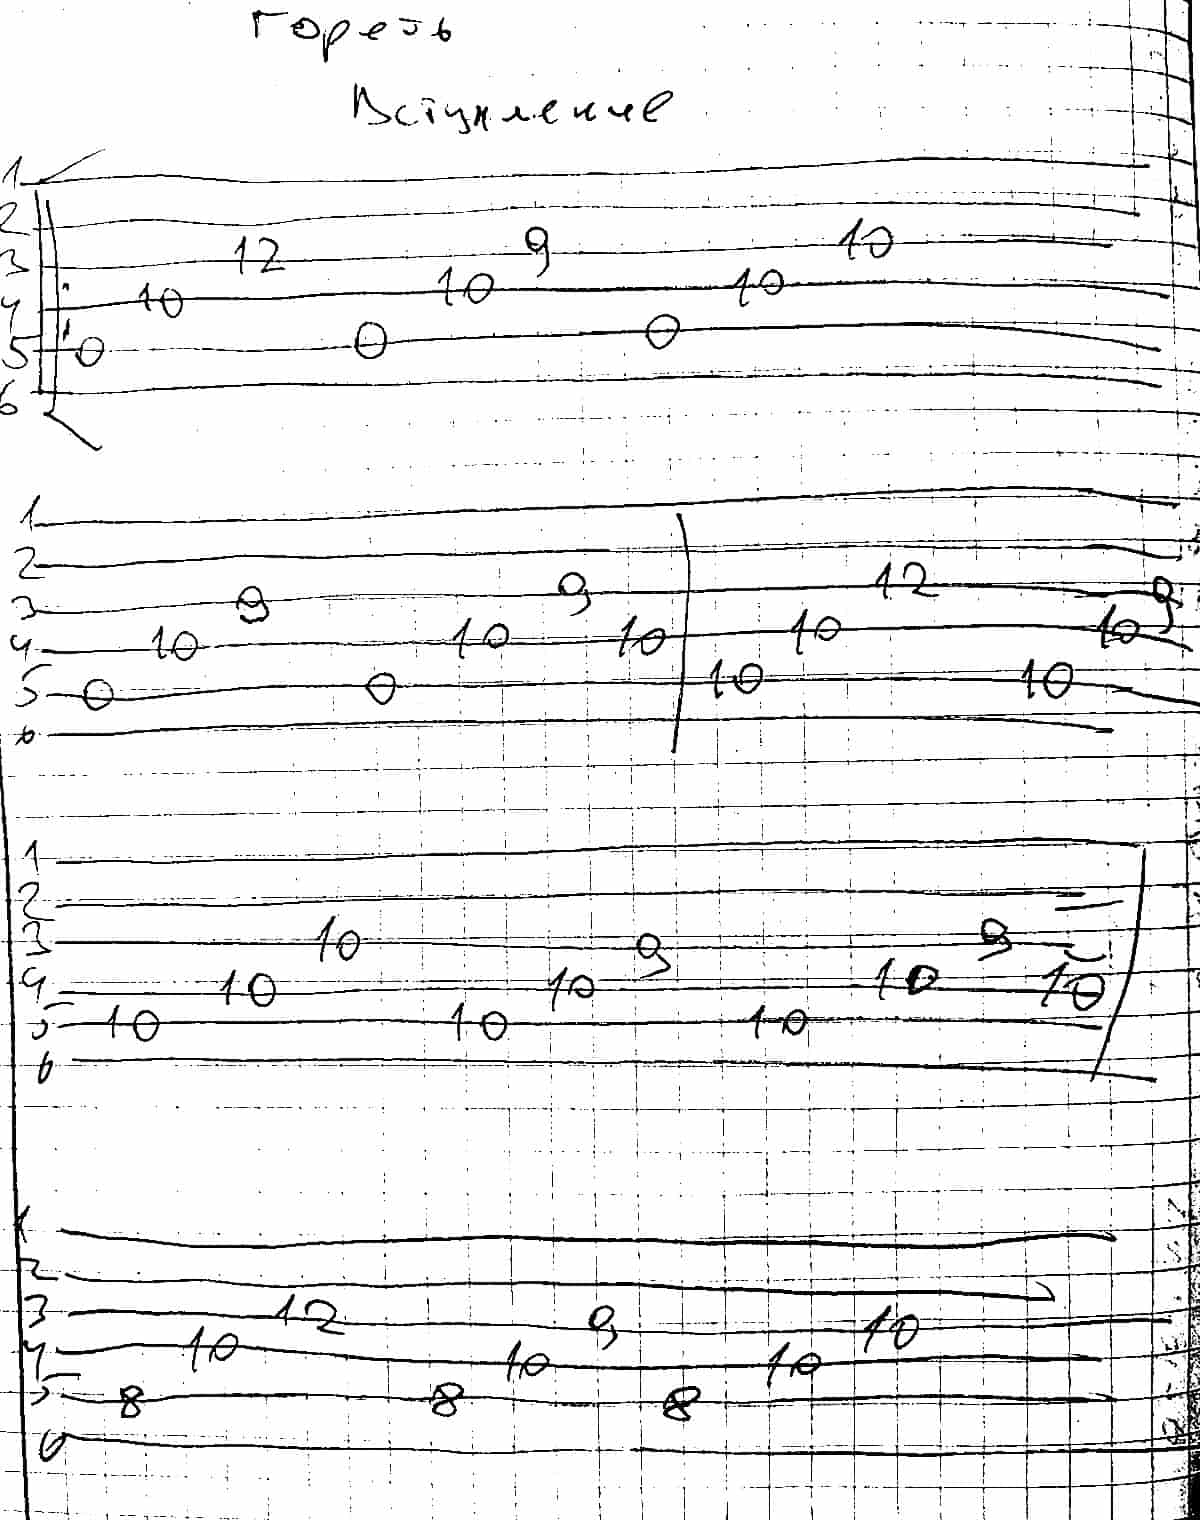 Гореть
Вступление
1
2
3 12 9 10
4 10 10 10
5 0 0 0
6
1
2
3 9 9 12 9
4 10 10 10 10 10
5 0 0 10 10
6
1
2
3 10 9 9
4 10 10 10 10
5 10 10 10
6
1
2
3 12 9 10
4 10 10 10
5 8 8 8
6